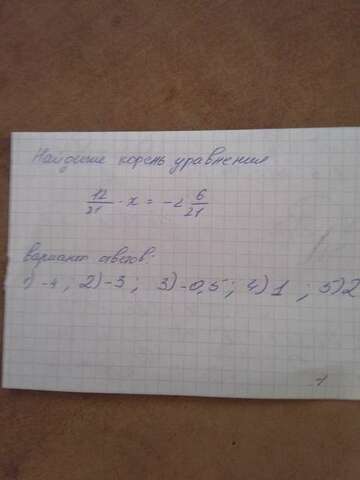 Найдите корень уравнения
12/21 · x = -2 6/21
Вариант ответов:
1) -4 ; 2) -3 ; 3) -0,5 ; 4) 1 ; 5) 2